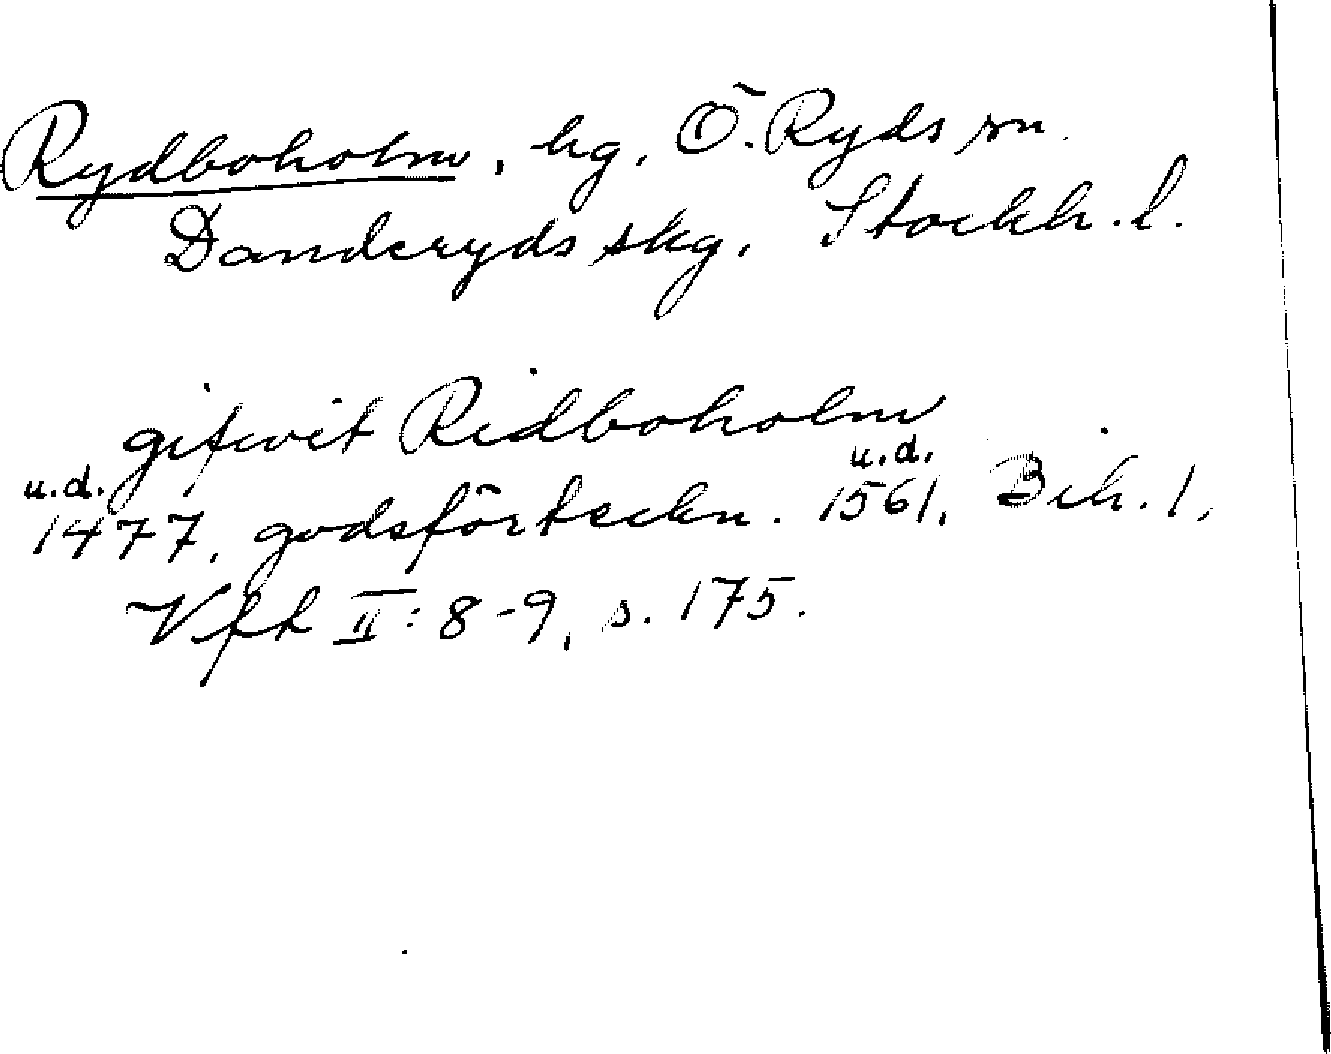 Rydboholm, hg, Ö. Ryds sn.
Danderyds skg, Stockh. l.
gifwit Ridboholm
u.d. u.d.
1477, godsförteckn. 1561, Bih. 1,
Vfk II: 8-9, s. 175.